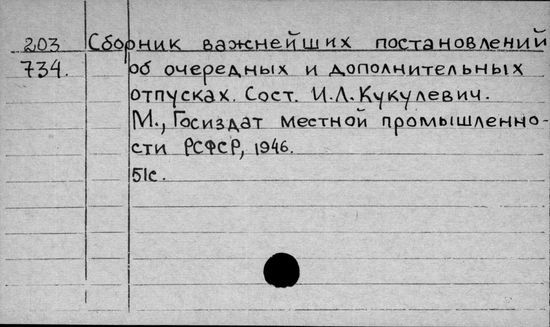 203 Сборник важнейших постановлений
734. об очередных и дополнительных
отпусках. Сост. И.Л.Кукулевич.
М., Госиздат местной промышленно-
сти РСФСР, 1946.
51с.